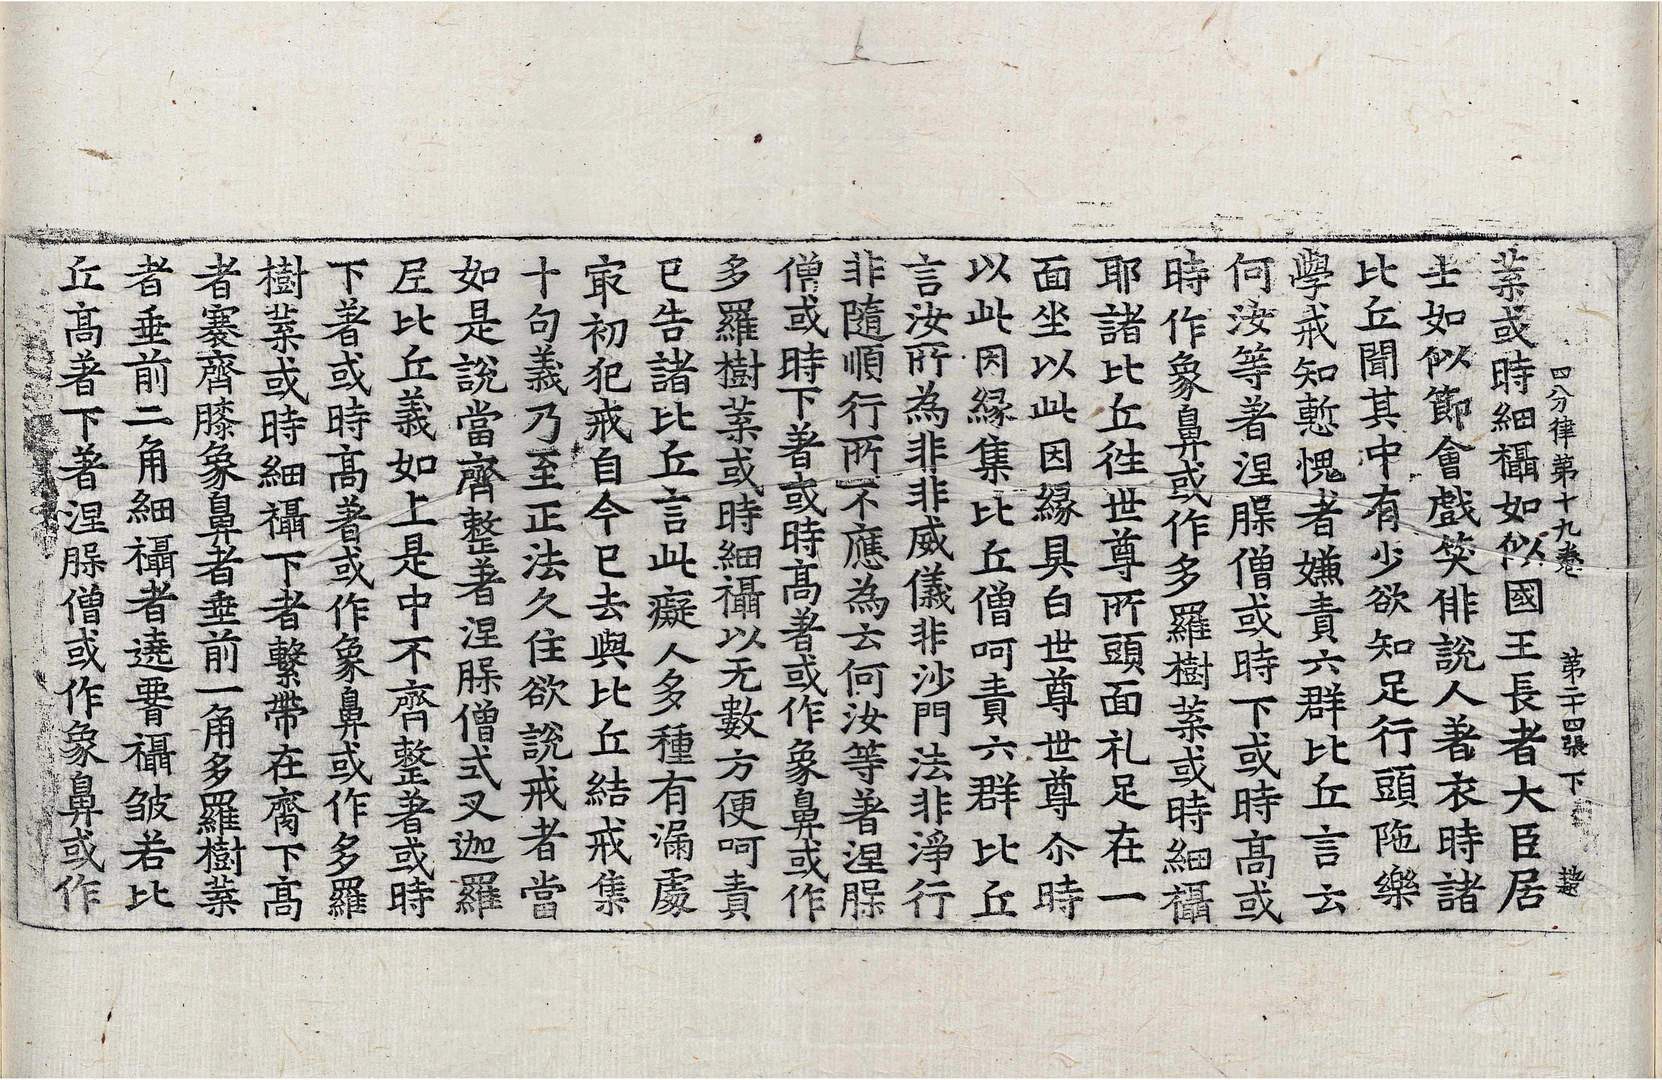 四分律第十九卷　第二十四張　下
葉或時細襵如似國王長者大臣居
士如似節會戲笑俳說人著衣時諸
比丘聞其中有少欲知足行頭陁樂
學戒知慙愧者嫌責六群比丘言云
何汝等著涅槃僧或時下或時高或
時作象鼻或作多羅樹葉或時細襵
耶諸比丘徃世尊所頭面礼足在一
面坐以此因緣具白世尊世尊尒時
以此因緣集比丘僧呵責六群比丘
言汝所為非非威儀非沙門法非淨行
非隨順行所不應為云何汝等著涅槃
僧或時下著或時高著或作象鼻或作
多羅樹葉或時細襵以无數方便呵責
已告諸比丘言此癡人多種有漏處
㝡初犯戒自今已去與比丘結戒集
十句義乃至正法久住欲說戒者當
如是說當齊整著涅槃僧式叉迦羅
尼比丘義如上是中不齊整著或時
下著或時高著或作象鼻或作多羅
樹葉或時細襵下者繫帶在齊下高
者褰齊膝象鼻者垂前一角多羅樹葉
者垂前二角細襵者遶𦝫襵皺若比
丘高著下著涅槃僧或作象鼻或作